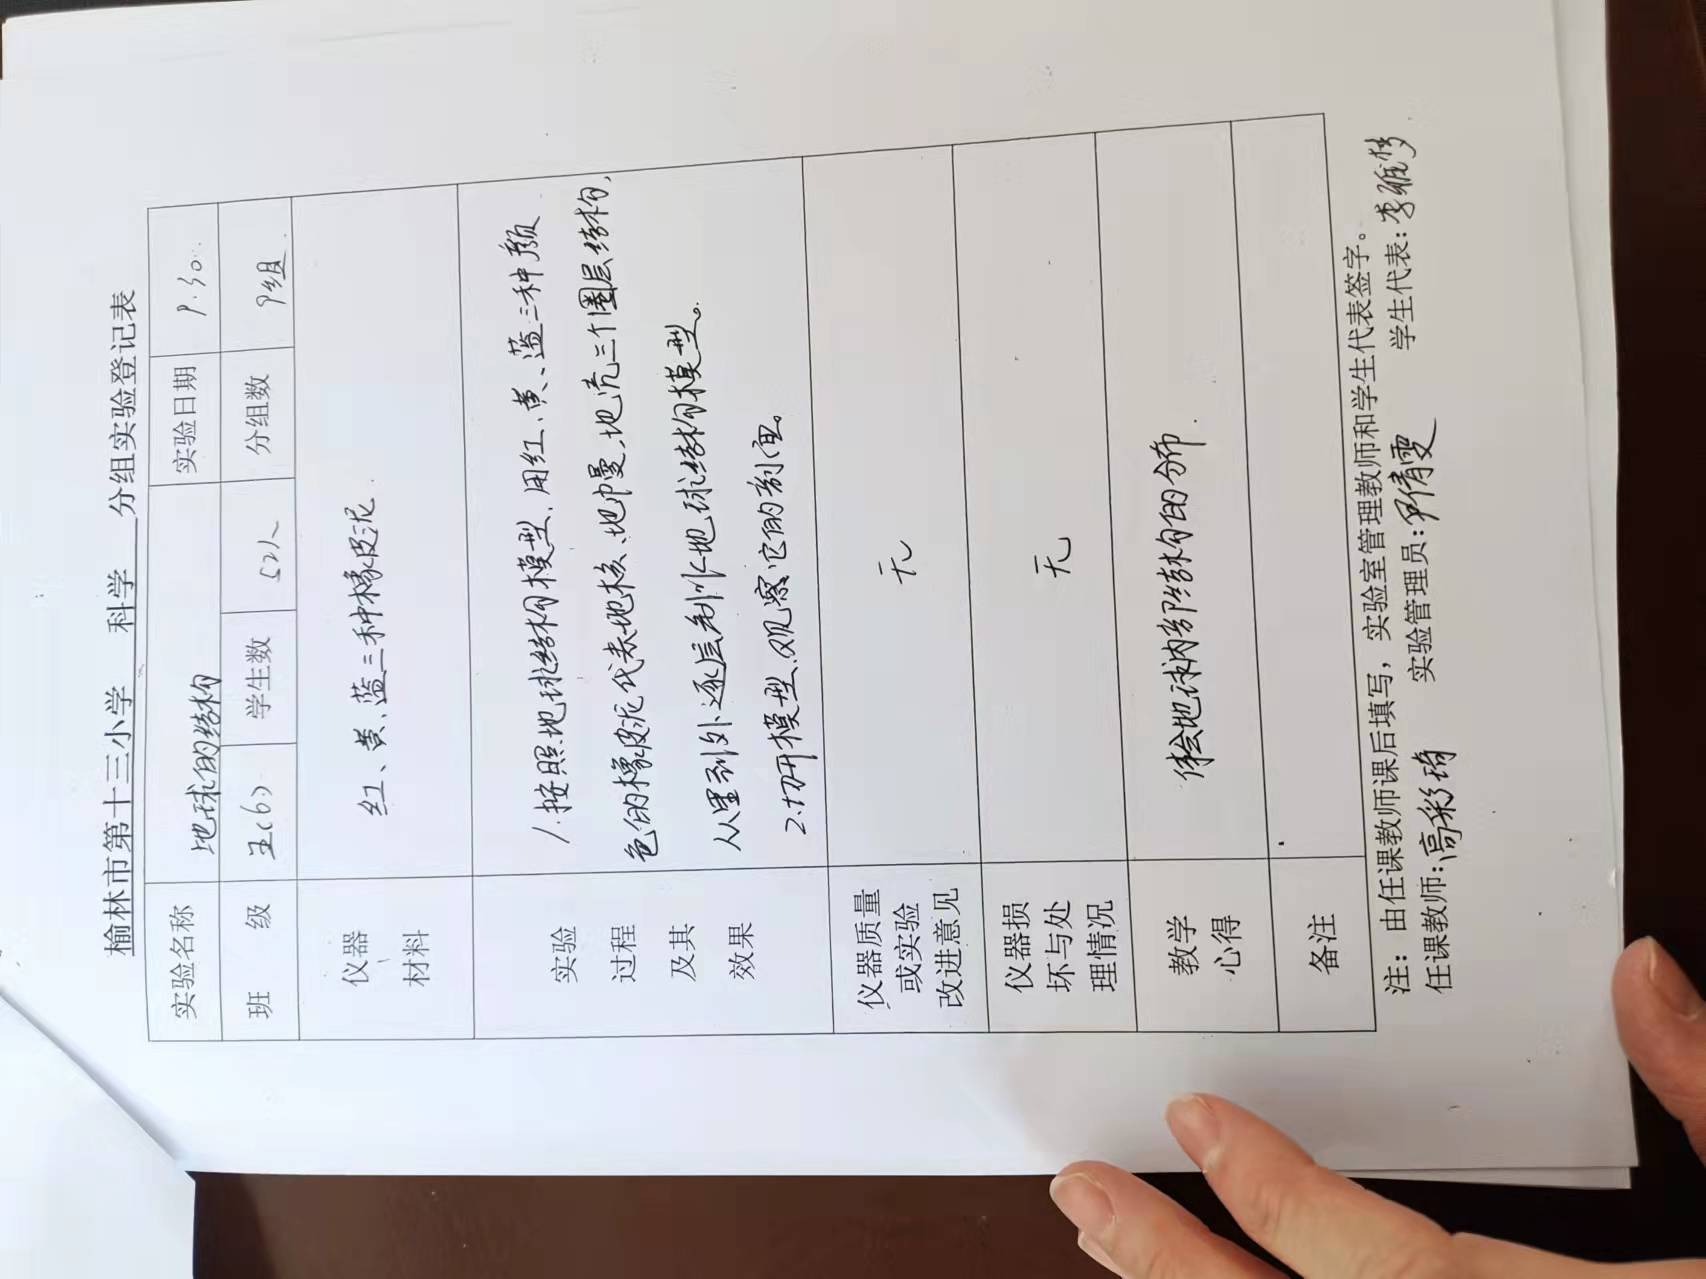 榆林市第十三小学 科学 分组实验登记表
实验名称 地球的结构 实验日期 9.30.
班 级 五(6) 学生数 52人 分组数 9组
仪器
材料
红、黄、蓝三种橡皮泥.
实验
过程
及其
效果
1.按照地球结构模型,用红、黄、蓝三种颜
色的橡皮泥代表地核、地幔、地壳三个圈层结构,
从里到外逐层制作地球结构模型。
2.切开模型,观察它的剖面。
仪器质量
或实验
改进意见
无
仪器损
坏与处
理情况
无
教学
心得
地球内部结构的分布.
备注
注：由任课教师课后填写，实验室管理教师和学生代表签字。
任课教师:高彩琦 实验管理员:尹倩雯 学生代表:李雅梦